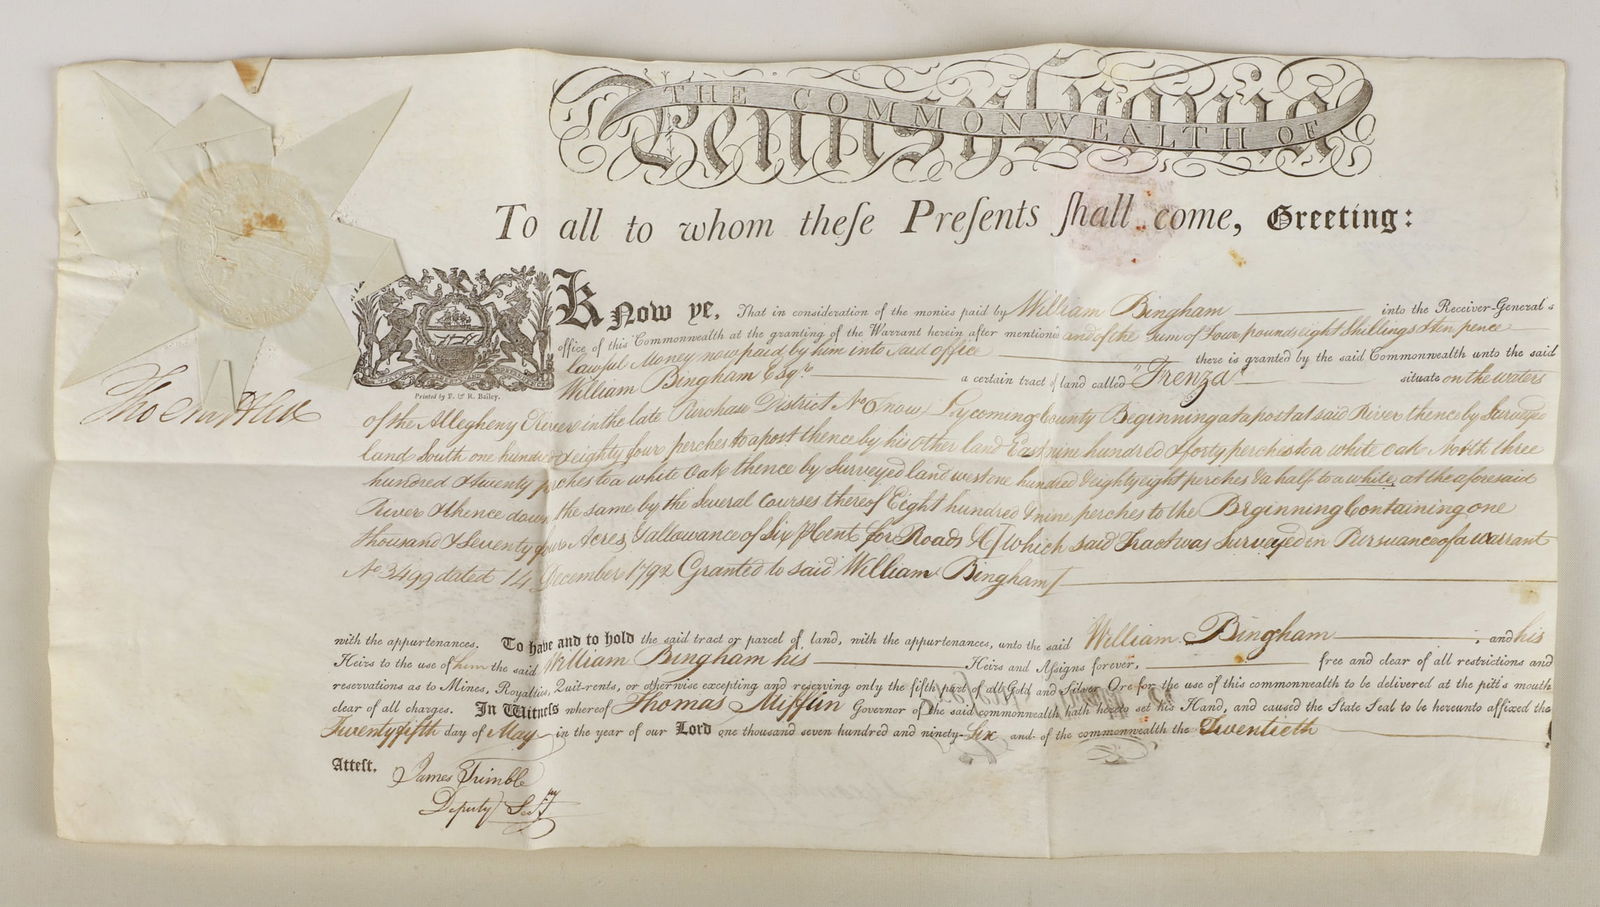 THE COMMONWEALTH OF
Pennsylvania
To all to whom theſe Preſents ſhall come, Greeting:
Know ye, That in conſideration of the monies paid by William Bingham into the Receiver-General's
office of this Commonwealth at the granting of the Warrant herein after mentioned and of the Sum of Four pounds eight Shillings & ten pence
lawful Money now paid by him into Said office there is granted by the said Commonwealth unto the said
William Bingham Esqr. a certain tract of land called "Trenza" situate on the waters
of the Allegheny River in the late Purchase District No 6 now Lycoming County Beginning at a post at said River thence by Surveyed
land South one hundred & eighty four perches to a post thence by his other land East nine hundred & forty perches to a white oak North three
hundred & twenty perches to a white Oak thence by Surveyed land west one hundred & eighty eight perches & a half to a white at the aforesaid
River & thence down the same by the several Courses thereof Eight hundred & nine perches to the Beginning Containing one
thousand & Seventy four Acres & allowance of Six Cent for Roads &c [which said Tract was Surveyed in Pursuance of a warrant
No 3499 dated 14 December 1792 Granted to said William Bingham]
Printed by F. & R. Bailey.
with the appurtenances. To have and to hold the said tract or parcel of land, with the appurtenances, unto the said William Bingham, and his
Heirs to the use of him the said William Bingham his Heirs and Aſsigns forever, free and clear of all restrictions and
reservations as to Mines, Royalties, Quit-rents, or otherwise excepting and reserving only the fifth part of all Gold and Silver Ore for the use of this commonwealth to be delivered at the pit's mouth
clear of all charges. In Witneſs whereof Thomas Mifflin Governor of the said commonwealth hath hereto set his Hand, and caused the State Seal to be hereunto affixed the
Twenty fifth day of May in the year of our Lord one thousand seven hundred and ninety-Six and of the commonwealth the Twentieth
Atteſt. James Trimble
Deputy Secy